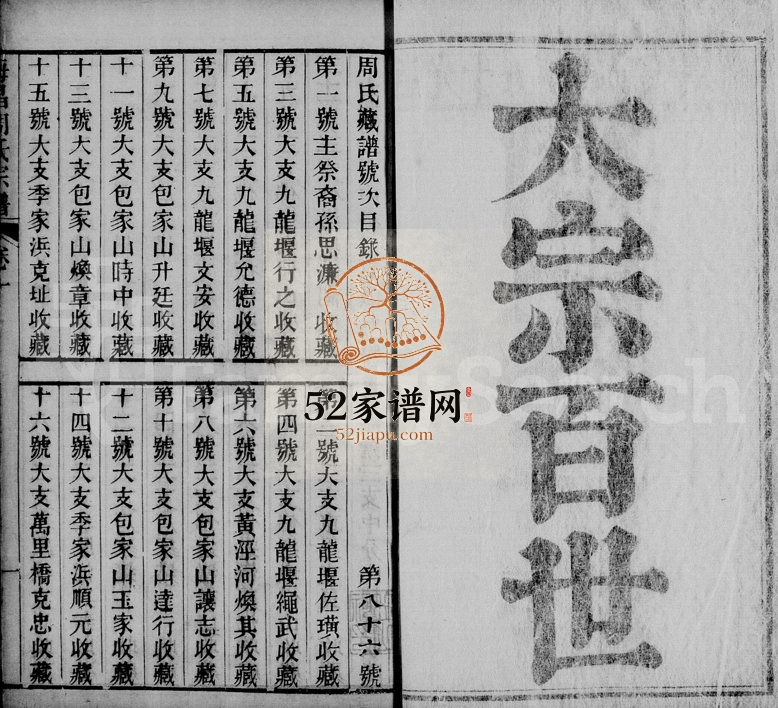 大宗百世
周氏藏譜號次目錄
第八十六號
第一號主祭裔孫思濂收藏
第三號大支九龍堰行之收藏
第五號大支九龍堰允德收藏
第七號大支九龍堰文安收藏
第九號大支包家山升廷收藏
十一號大支包家山時中收藏
十三號大支包家山煥章收藏
十五號大支季家浜克址收藏
第二號大支九龍堰佐璜收藏
第四號大支九龍堰繩武收藏
第六號大支黃涇河煥其收藏
第八號大支包家山讓志收藏
第十號大支包家山達行收藏
十二號大支包家山玉家收藏
十四號大支季家浜順元收藏
十六號大支萬里橋克忠收藏
周氏宗譜
卷一
52家谱网
52jiapu.com